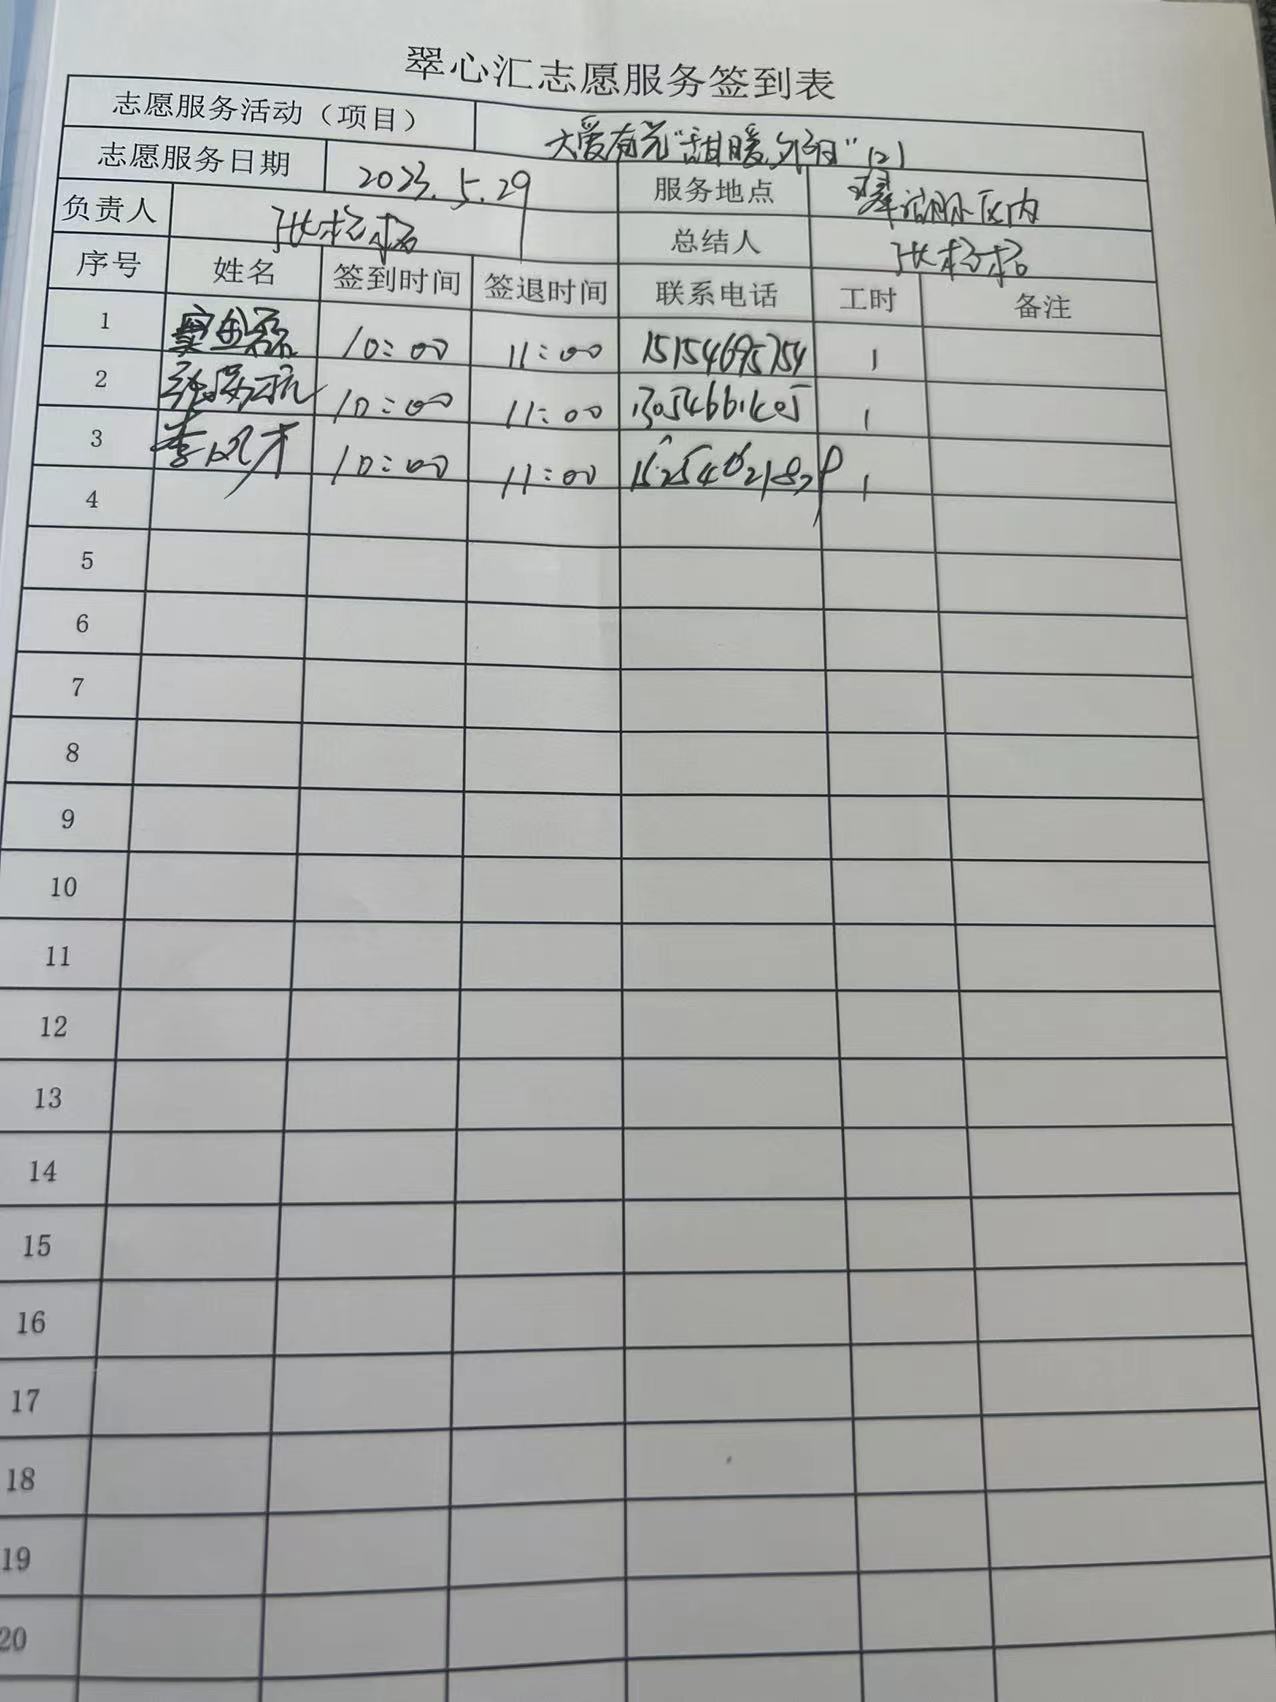 翠心汇志愿服务签到表
志愿服务活动（项目） 大爱有光"甜暖夕阳"(2)
志愿服务日期 2023.5.29 服务地点 翠湖社区内
负责人 总结人
序号 姓名 签到时间 签退时间 联系电话 工时 备注
1 10:00 11:00 15154695754 1
2 10:00 11:00 1
3 李凤才 10:00 11:00 1
4
5
6
7
8
9
10
11
12
13
14
15
16
17
18
19
20